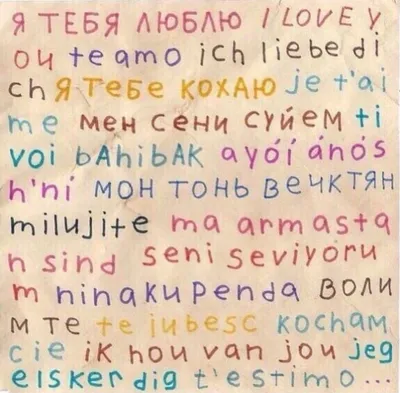 Я ТЕБЯ ЛЮБЛЮ I LOVE Y
ou te amo ich liebe di
ch Я ТЕБЕ КОХАЮ je t'ai
me мен сени суйем ti
voi bAhibAK ayóí ánós
h'ní МОН ТОНЬ ВЕЧКТЯН
milujite ma armasta
n sind seni seviyoru
m ninakupenda ВОЛИ
М ТЕ te iubesc kocham
cie ik hou van jou jeg
elsker dig t'estimo...